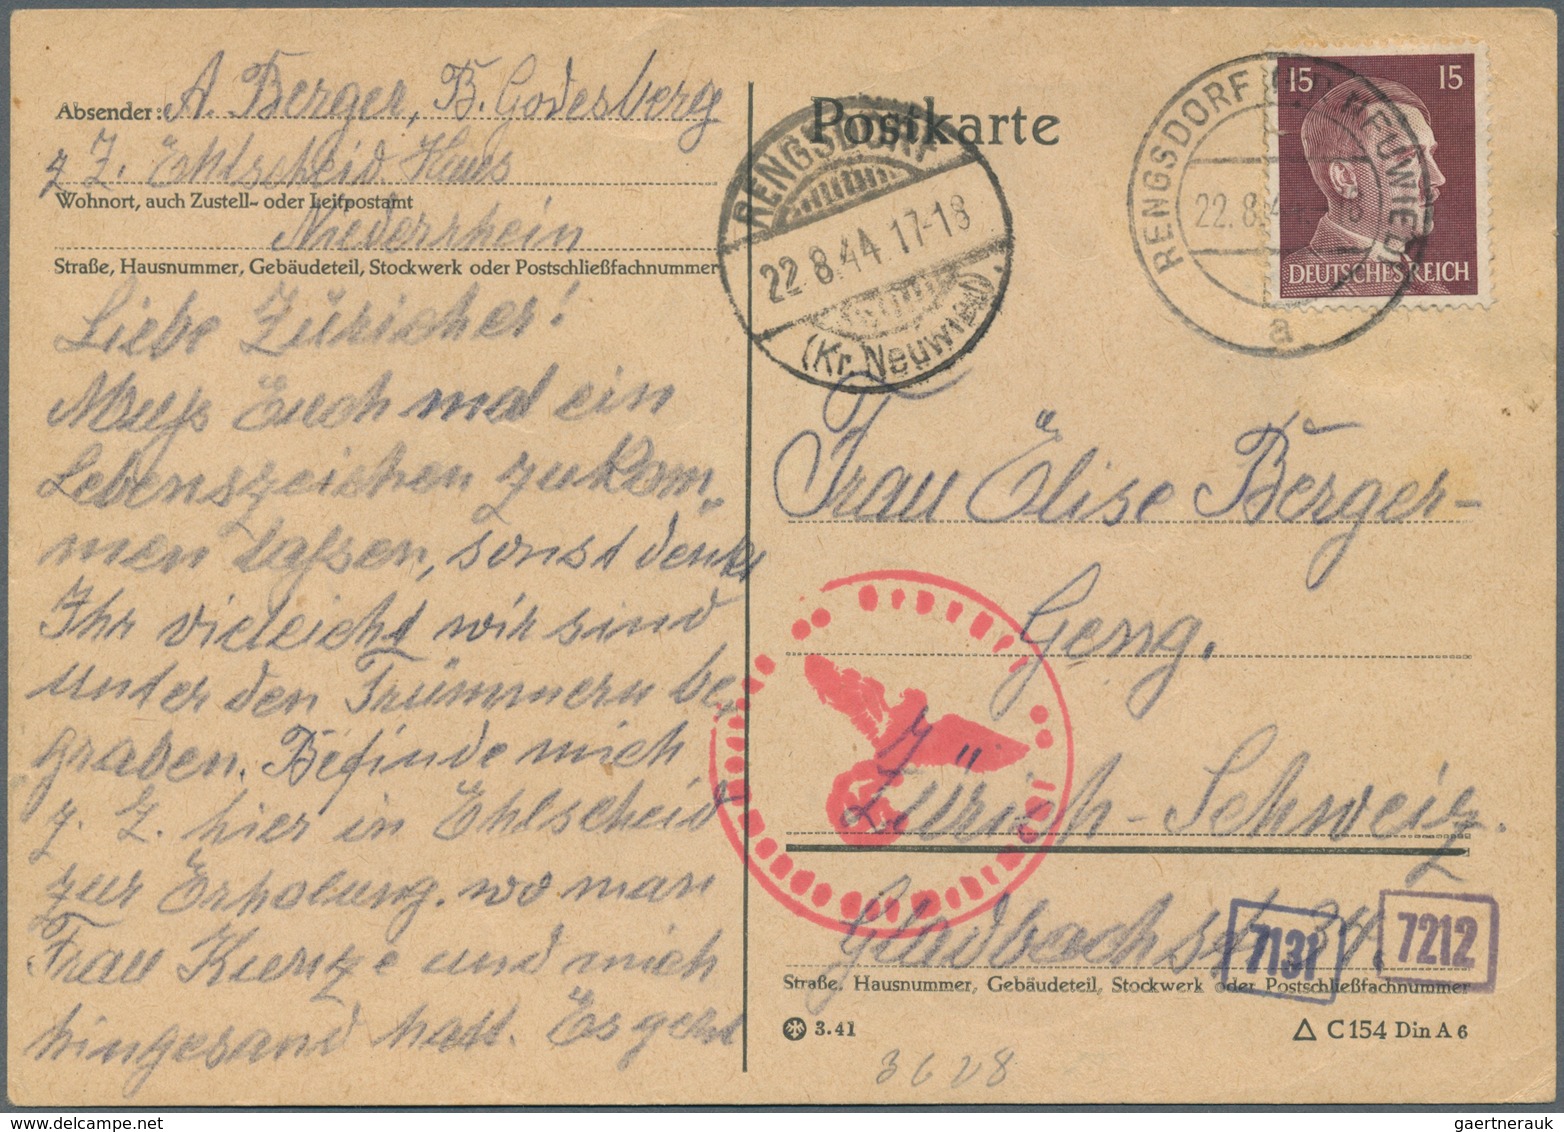 Absender: A. Berger, B. Godesberg
z Z. Ehlscheid Haus
Wohnort, auch Zustell- oder Leitpostamt
Niederrhein
Straße, Hausnummer, Gebäudeteil, Stockwerk oder Postschließfachnummer
Liebe Züricher!
Muß Euch mal ein
Lebenszeichen zukom-
men laßen, sonst denkt
Ihr vieleicht wir sind
unter den Trümmern be-
graben. Befinde mich
z. Z. hier in Ehlscheid
zur Erholung. wo man
Frau Kunze und mich
hingesand hatt. Es geht
Postkarte
RENGSDORF
22.8.44.17-18
(Kr. Neuwied)
RENGSDORF NEUWIED
22.8.44
a
15 15
DEUTSCHES REICH
Frau Elise Berger-
Geng.
Zürich-Schweiz.
Gladbachst. 34.
7131
7212
Straße, Hausnummer, Gebäudeteil, Stockwerk oder Postschließfachnummer
3.41
C 154 Din A 6
3628
gaertnerauk